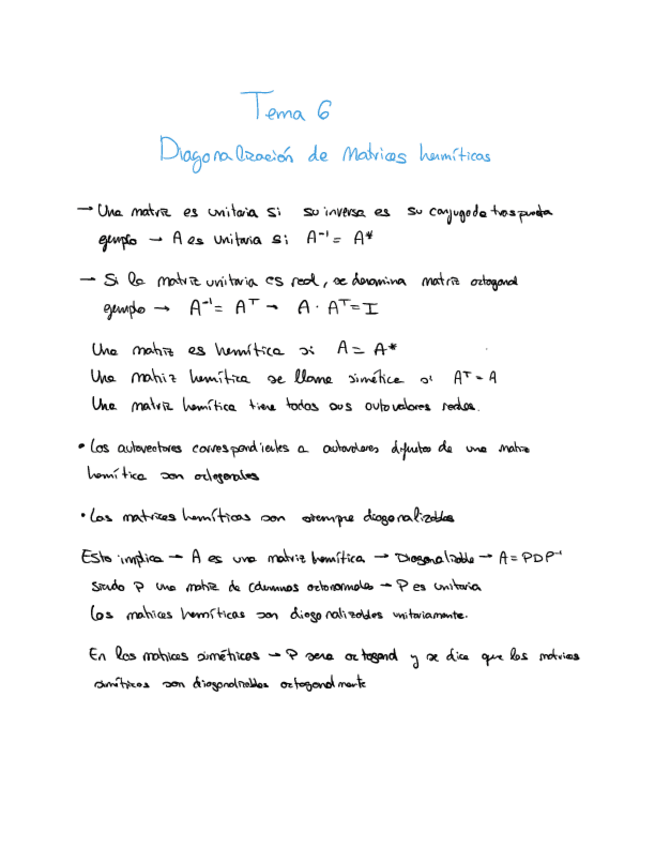 Tema 6
Diagonalización de Matrices hermíticas
→ Una matriz es unitaria si su inversa es su conjugada traspuesta
ejemplo → A es unitaria si A⁻¹ = A*
→ Si la matriz unitaria es real, se denomina matriz octogonal
ejemplo → A⁻¹ = Aᵀ → A · Aᵀ = I
Una matriz es hemítica si A = A*
Una matriz hemítica se llama simética si Aᵀ = A
Una matriz hemítica tiene todos sus autovalores reales.
• Los autovectores correspondientes a autovalores distintos de una matriz
hemítica son octogonales
• Las matrices hemíticas son siempre diagonalizables
Esto implica → A es una matriz hemítica → Diagonalizable → A = PDP⁻¹
siendo P una matriz de columnas octonormales → P es unitaria
Las matrices hemíticas son diagonalizables unitariamente.
En las matrices siméticas → P sera octogonal y se dice que las matrices
siméticas son diagonalizables octogonalmente